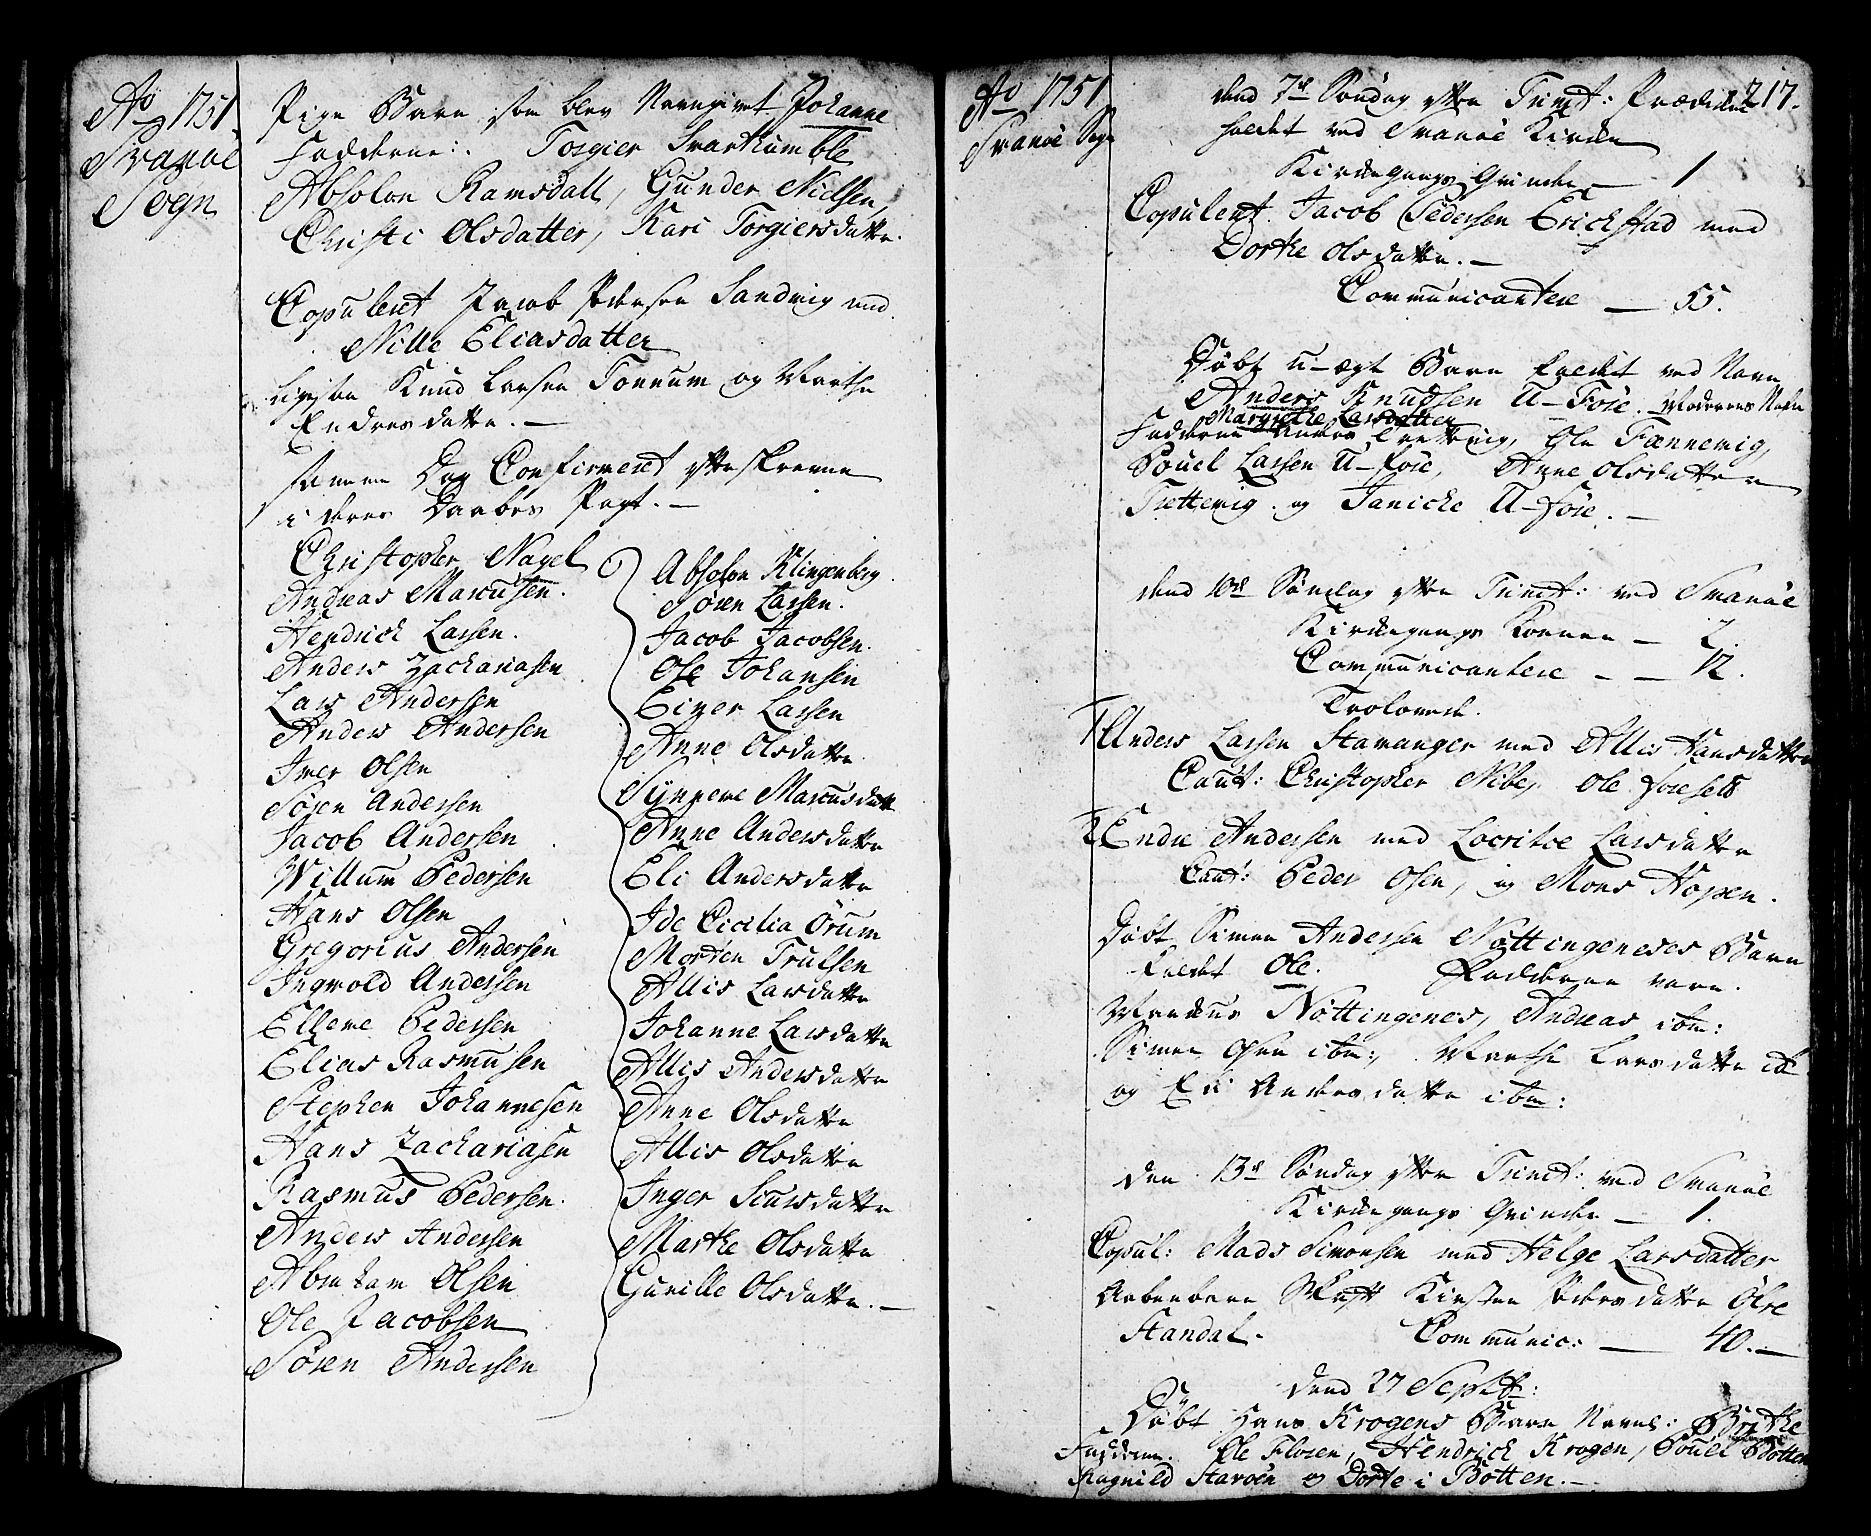 Ao 1751
Svanöe
Sogn
Pige Barn som blev Nevngivet Johanne
Fadderne: Torgier Svartkumble
Absolon Ramsdall, Gunder Nielsen,
Christi Olsdatter, Kari Torgiersdatter.
Copuleret Jacob Pedersen Sandvig med
Nille Eliasdatter
Ligesaa Knud Larsen Tonnum og Marthe
Endresdatter. —
samme Dag Confirmeret efterskrevne
i deres Daabes Pagt. —
Christopher Nagel
Andreas Marcusen.
Hendrick Larsen.
Anders Zachariasen
Lars Andersen
Anders Andersen
Iver Olsen
Sören Andersen
Jacob Andersen
Willum Pedersen
Hans Olsen
Gregorius Andersen
Ingvold Andersen
Elleve Pedersen
Elias Rasmusen
Stephen Johannesen
Hans Zachariasen
Rasmus Pedersen.
Anders Andersen
Abraham Olsen
Ole Jacobsen
Sören Andersen
Absolon Klingenberg.
Sören Larsen.
Jacob Jacobsen.
Ole Johansen
Einer Larsen
Anne Olsdatter
Synneve Marcusdatt
Anne Andersdatter
Eli Andersdatter
Ide Cicilia Örum
Morten Trulsen
Allis Larsdatter
Johanne Larsdatter
Allis Andersdatter
Anne Olsdatter
Allis Olsdatter
Inger Siursdatter
Marthe Olsdatter
Gunille Olsdatter. —
Ao 1751
Svanöe Sogn
217.
dend 7de Söndag efter Trinit: Prædiken
holdet ved Svanöe Kirke
Kirkegangs Qvinde — 1
Copuleret Jacob Pedersen Erickstad med
Dorthe Olsdatter. —
Communicantere — 55.
Döbt u-ægte Barn kaldet ved Navn
Anders Knudsen U-Föie. Moderens Navn
Margrethe Larsdatter
Fadderne Anders Trettevig, Ole Fannevig,
Pouel Larsen U-föie, Anne Olsdatter
Trettevig og Janicke U-föie. —
dend 10de Söndag efter Trinit: ved Svanöe
Kirkegangs Konner — 2
Communicantere — — 12.
Trolovede.
1 Anders Larsen Stavanger med Allis Hansdatter
Caut: Christopher Nibe, Ole
2 Endre Andersen med Lars datter
Caut: Peder Olsen, og Mons Hopen.
Döbt Simen Andersen Nöttingenes's Barn
kaldet Ole. Fadderne vare.
Marcus Nöttingenes, Andreas ibm:
Simen Olsen ibm:, Marthe Larsdatter ib
og Eli Andersdatter ibm:
den 13de Söndag efter Trinit: ved Svanöe
Kirkegangs Qvinde — 1.
Copul: Mads Simonsen med Helge Larsdatter
Aabenbare Skrift Kirsten Pedersdatter
Standal. Communic: — 40. —
dend 27 Septb:
Döbt Hans Krogens Barn Navnl: Birthe
Fadderne. Ole Flosen, Hendrick Krogen, Pouel Botten
Ragnild Stavöen og Dorte i Botten. —